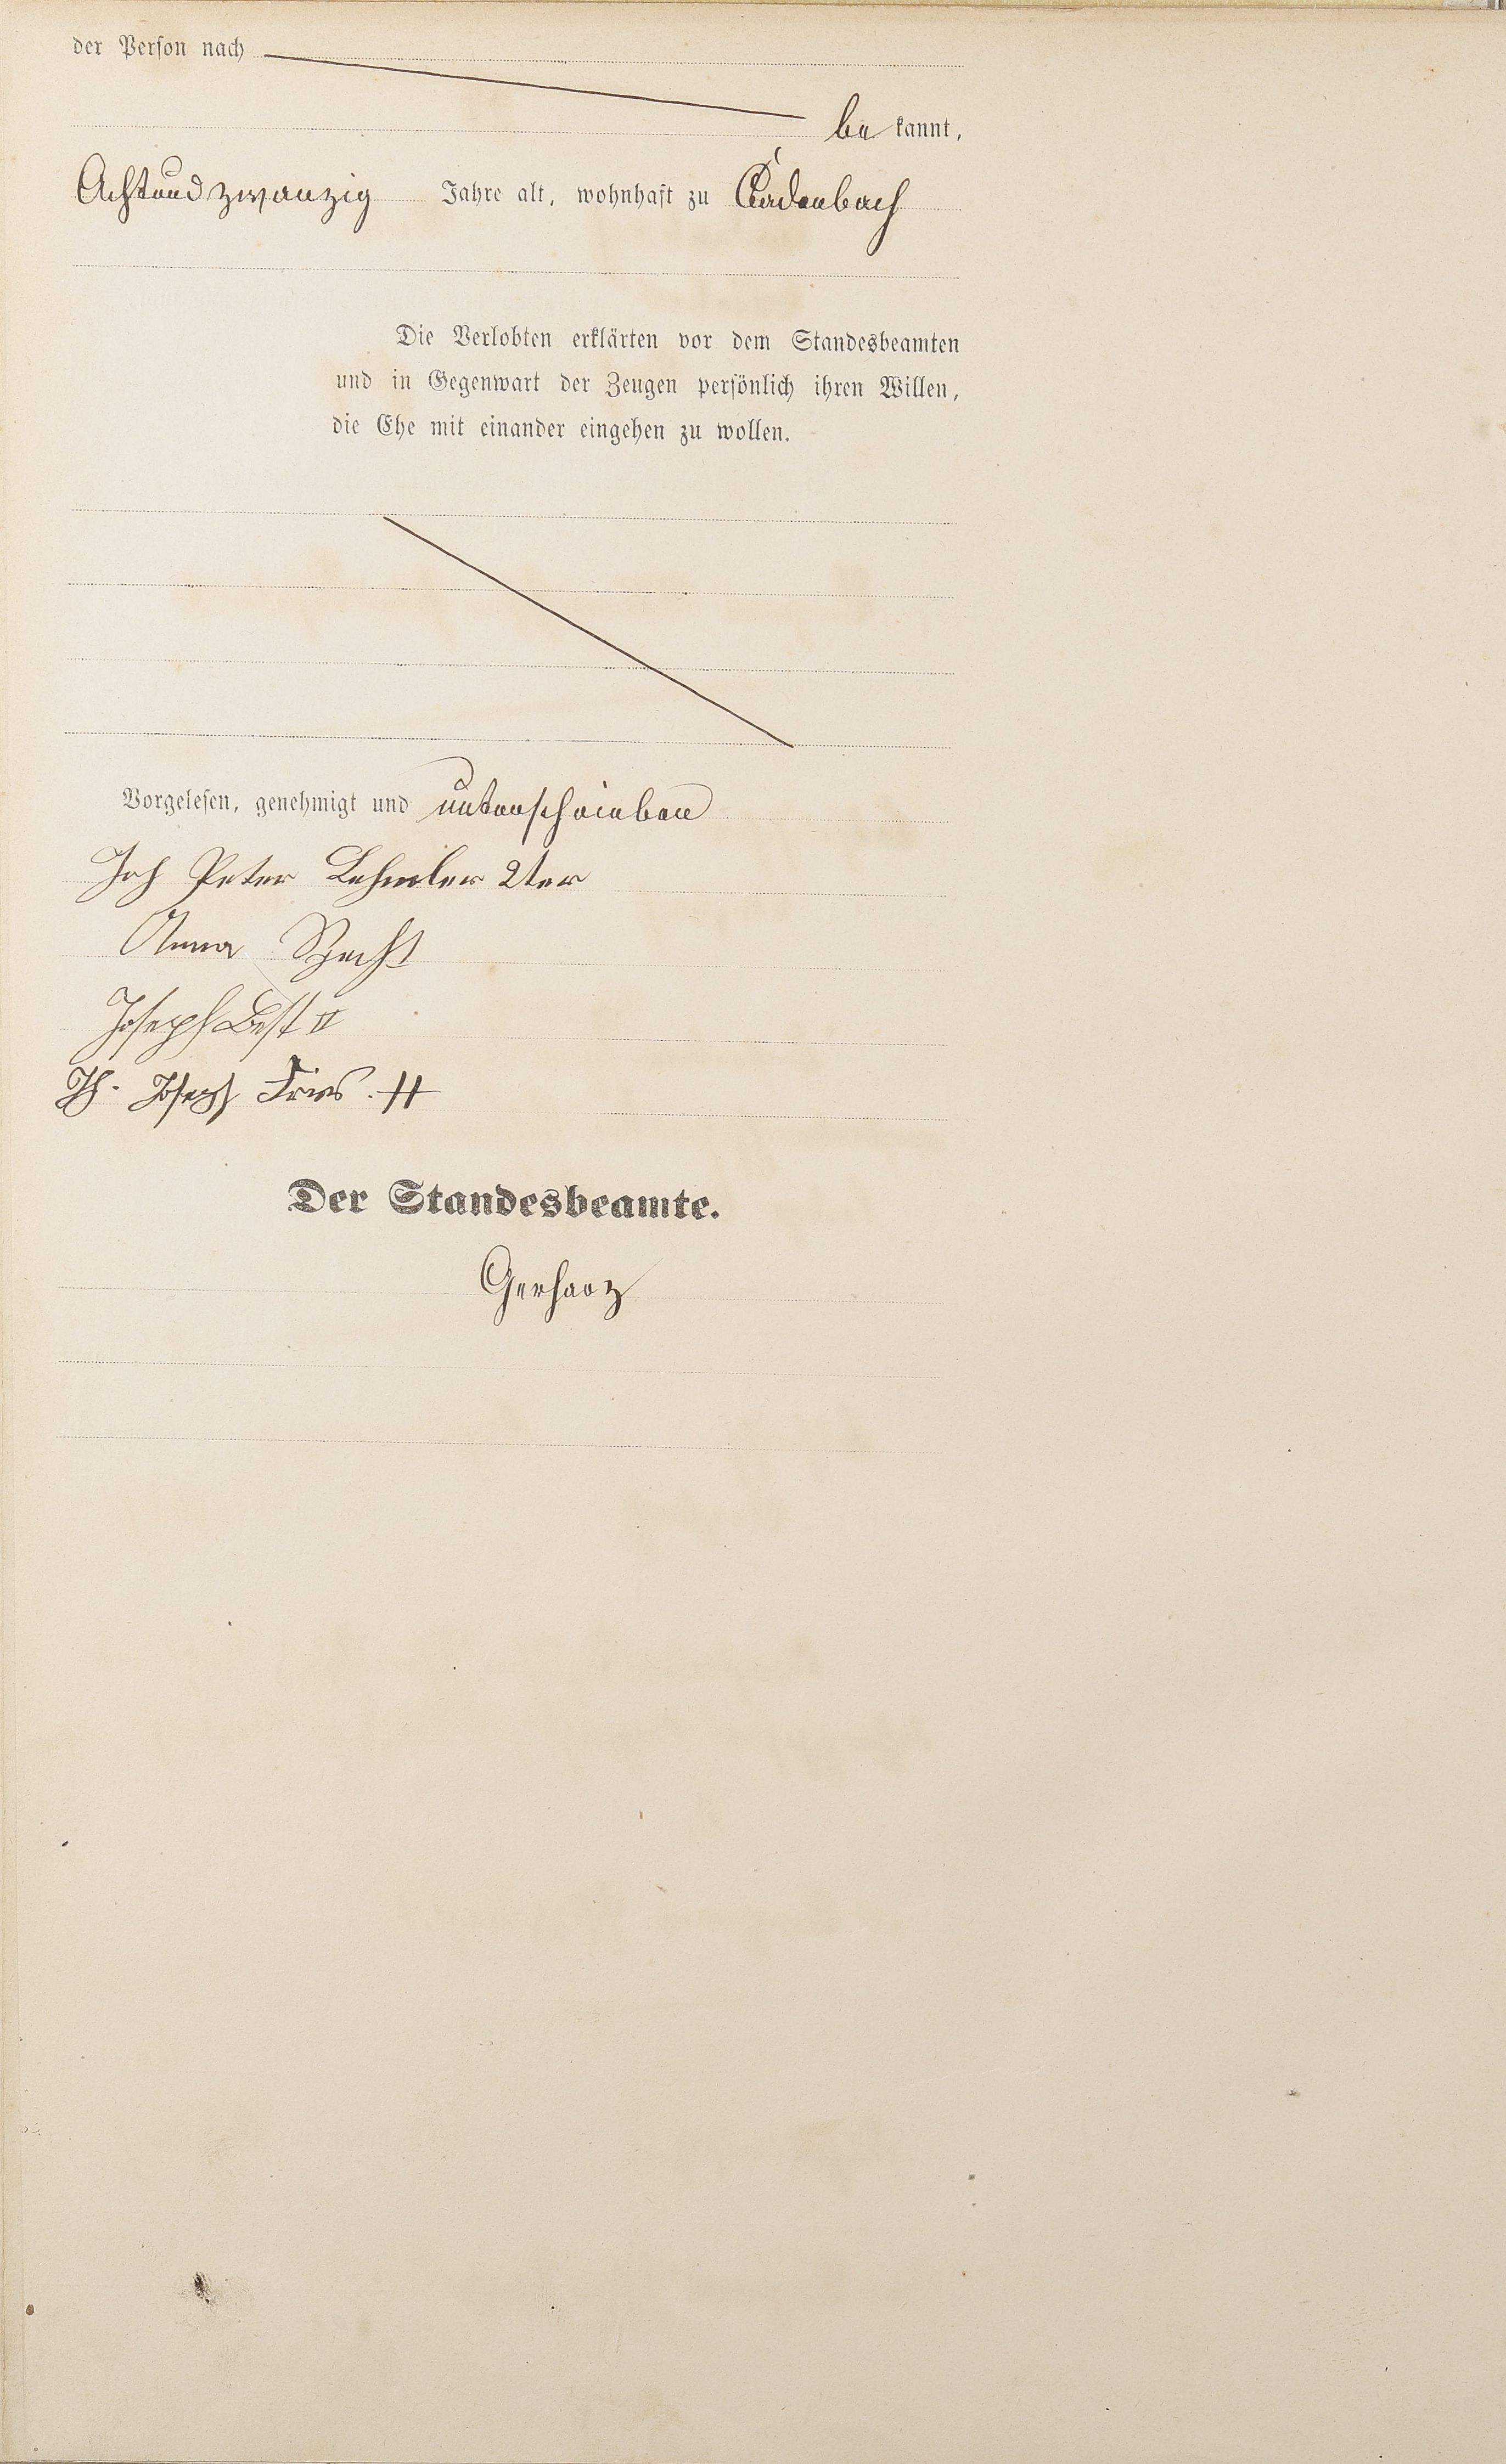 der Person nach
be kannt,
Achtundzwanzig Jahre alt, wohnhaft zu Cadenbach
Die Verlobten erklärten vor dem Standesbeamten
und in Gegenwart der Zeugen persönlich ihren Willen,
die Ehe mit einander eingehen zu wollen.
Vorgelesen, genehmigt und unterschrieben
Joh Peter Lehmler 2ter
Anna Specht
Joseph Best II
Joseph Fries II
Der Standesbeamte.
Gerharz